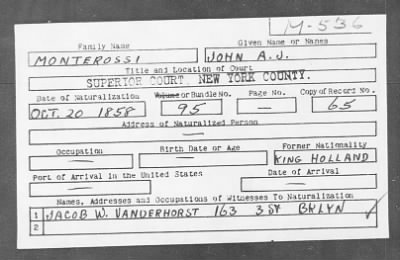 M-536
Family Name Given Name or Names
MONTEROSSI JOHN A.J.
Title and Location of Court
SUPERIOR COURT, NEW YORK COUNTY.
Date of Naturalization Volume or Bundle No. Page No. Copy of Record No.
OCT. 20 1858 95 — 65
Address of Naturalized Person
—
Occupation Birth Date or Age Former Nationality
— — KING HOLLAND
Port of Arrival in the United States Date of Arrival
— —
Names, Addresses and Occupations of Witnesses To Naturalization
1 JACOB W. VANDERHORST 163 3 ST BKLYN ✓
2